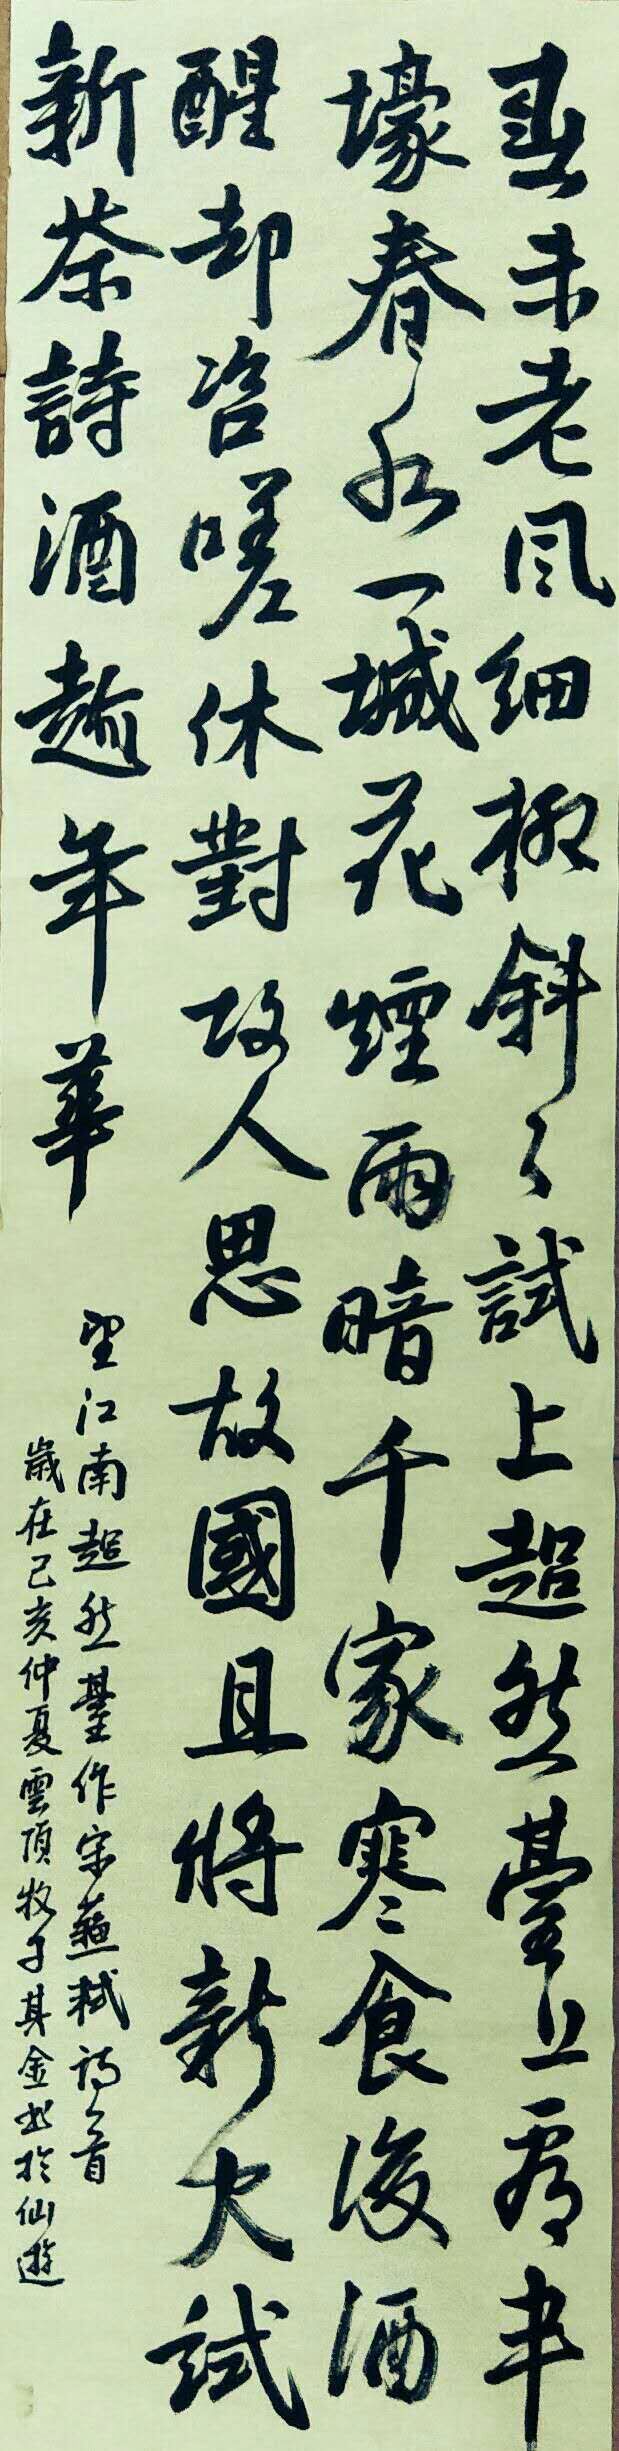 春未老風細柳斜〻試上超然臺上看半
壕春水一城花煙雨暗千家寒食後酒
醒却咨嗟休對故人思故國且將新火試
新茶詩酒趁年華
望江南超然臺作宋蘇軾詩一首
歲在己亥仲夏雲頂牧子其金書於仙遊